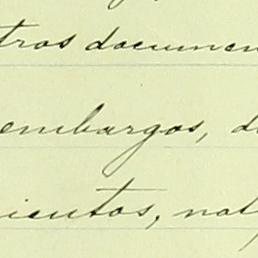 tros documen
embargos, d
ientos, not